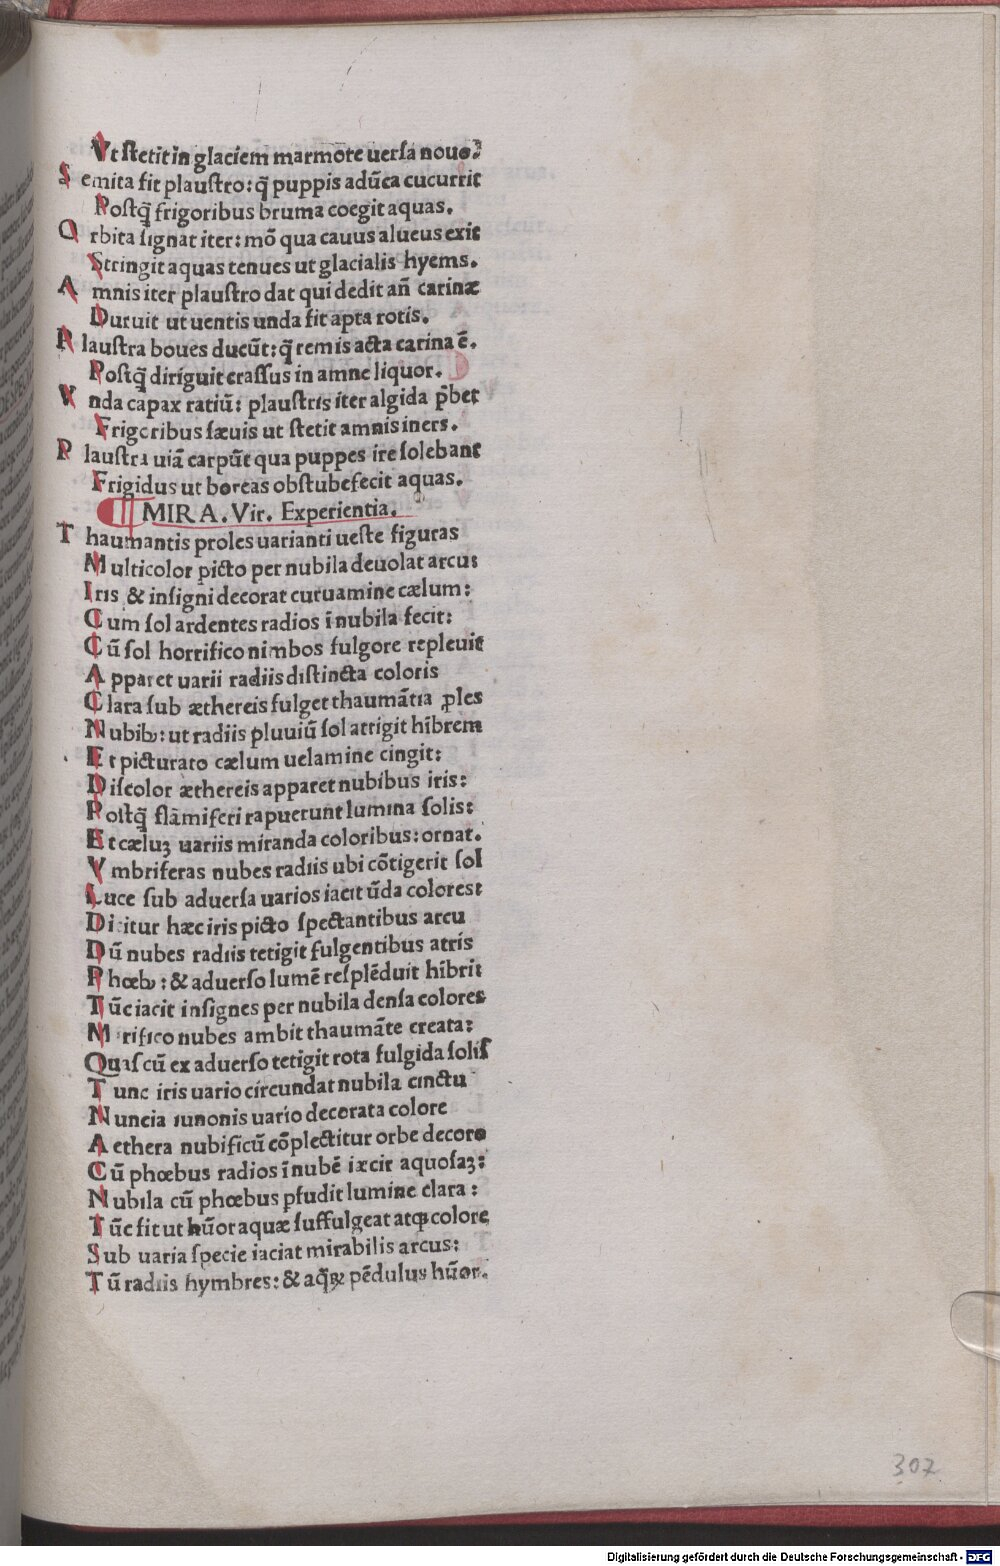 Vt ſtetit in glaciem marmore uerſa nouo?
S emita fit plauſtro: q̃ puppis adũca cucurrit
Poſtq̃ frigoribus bruma coegit aquas.
O rbita ſignat iter: mõ qua cauus alueus exit
Stringit aquas tenues ut glacialis hyems.
A mnis iter plauſtro dat qui dedit añ carinæ
Duruit ut uentis unda fit apta rotis.
P lauſtra boues ducũt: q̃ remis acta carina ẽ.
Poſtq̃ diriguit craſſus in amne liquor.
V nda capax ratiũ: plauſtris iter algida p̃bet
Frigoribus ſæuis ut ſtetit amnis iners.
P lauſtra uiã carpũt qua puppes ire ſolebant
Frigidus ut boreas obſtubefecit aquas.
MIRA. Vir. Experientia.
T haumantis proles uarianti ueſte figuras
M ulticolor picto per nubila deuolat arcus
Iris & inſigni decorat curuamine cælum:
C um ſol ardentes radios ĩ nubila fecit:
C ũ ſol horrifico nimbos fulgore repleuit
A pparet uarii radiis diſtincta coloris
C lara ſub æthereis fulget thaumãtia ꝓles
N ubibꝰ: ut radiis pluuiũ ſol attigit hibrem
E t picturato cælum uelamine cingit:
D iſcolor æthereis apparet nubibus iris:
P oſtq̃ flãmiferi rapuerunt lumina ſolis:
E t cæluꝫ uariis miranda coloribus: ornat.
V mbriferas nubes radiis ubi cõtigerit ſol
Luce ſub aduerſa uarios iacit ũda colores:
D icitur hæc iris picto ſpectantibus arcu
D ũ nubes radiis tetigit fulgentibus atris
P hœbꝰ: & aduerſo lumẽ reſplẽduit hibri:
T ũc iacit inſignes per nubila denſa colores
M irifico nubes ambit thaumãte creata:
Quaſ cũ ex aduerſo tetigit rota fulgida ſoliſ
T unc iris uario circundat nubila cinctu
N uncia iunonis uario decorata colore
A ethera nubificũ cõplectitur orbe decoro
C ũ phœbus radios ĩ nubẽ iecit aquoſaꝫ:
N ubila cũ phœbus ꝑfudit lumine clara:
T ũc fit ut hũor aquæ ſuffulgeat atqꝫ colore
S ub uaria ſpecie iaciat mirabilis arcus:
T ũ radiis hymbres: & aq̃ꝝ pẽdulus hũor.
307
Digitalisierung gefördert durch die Deutsche Forschungsgemeinschaft - DFG